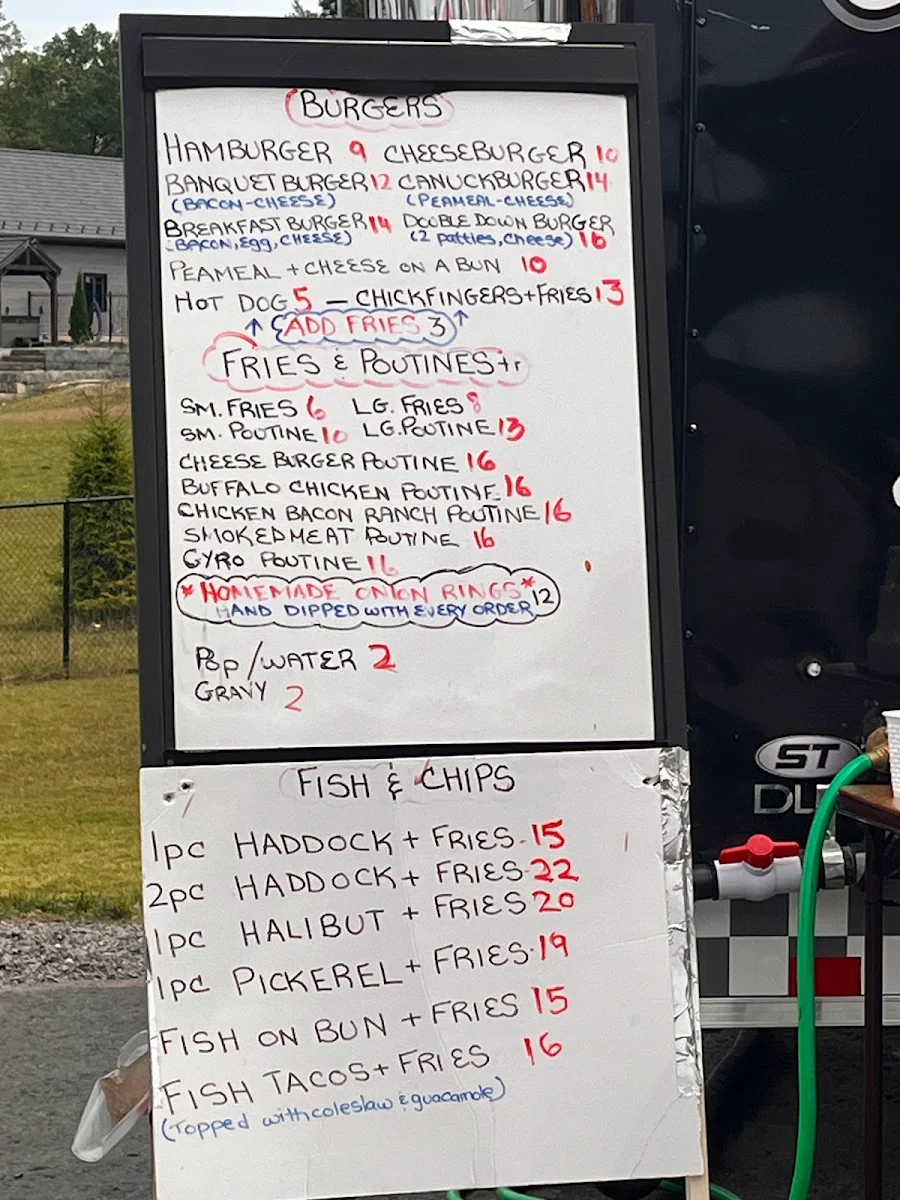 BURGERS
HAMBURGER 9 CHEESEBURGER 10
BANQUET BURGER 12 CANUCKBURGER 14
(BACON-CHEESE) (PEAMEAL-CHEESE)
BREAKFAST BURGER 14 DOUBLE DOWN BURGER
(BACON, Egg, CHEESE) (2 patties, cheese) 16
PEAMEAL + CHEESE ON A BUN 10
HOT DOG 5 — CHICKFINGERS + FRIES 13
↑ ADD FRIES 3 ↑
FRIES & POUTINES
SM. FRIES 6 LG. FRIES 8
SM. POUTINE 10 LG. POUTINE 13
CHEESE BURGER POUTINE 16
BUFFALO CHICKEN POUTINE 16
CHICKEN BACON RANCH POUTINE 16
SMOKED MEAT POUTINE 16
GYRO POUTINE 16
*HOMEMADE ONION RINGS* 12
HAND DIPPED WITH EVERY ORDER
Pop/WATER 2
GRAVY 2
FISH & CHIPS
1pc HADDOCK + FRIES - 15
2pc HADDOCK + FRIES - 22
1pc HALIBUT + FRIES 20
1pc PICKEREL + FRIES - 19
FISH ON BUN + FRIES 15
FISH TACOS + FRIES 16
(Topped with coleslaw & guacamole)
ST